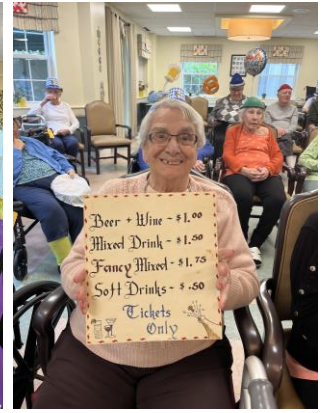 Beer + Wine - $1.00
Mixed Drink - $1.50
Fancy Mixed - $1.75
Soft Drinks - $.50
Tickets
Only